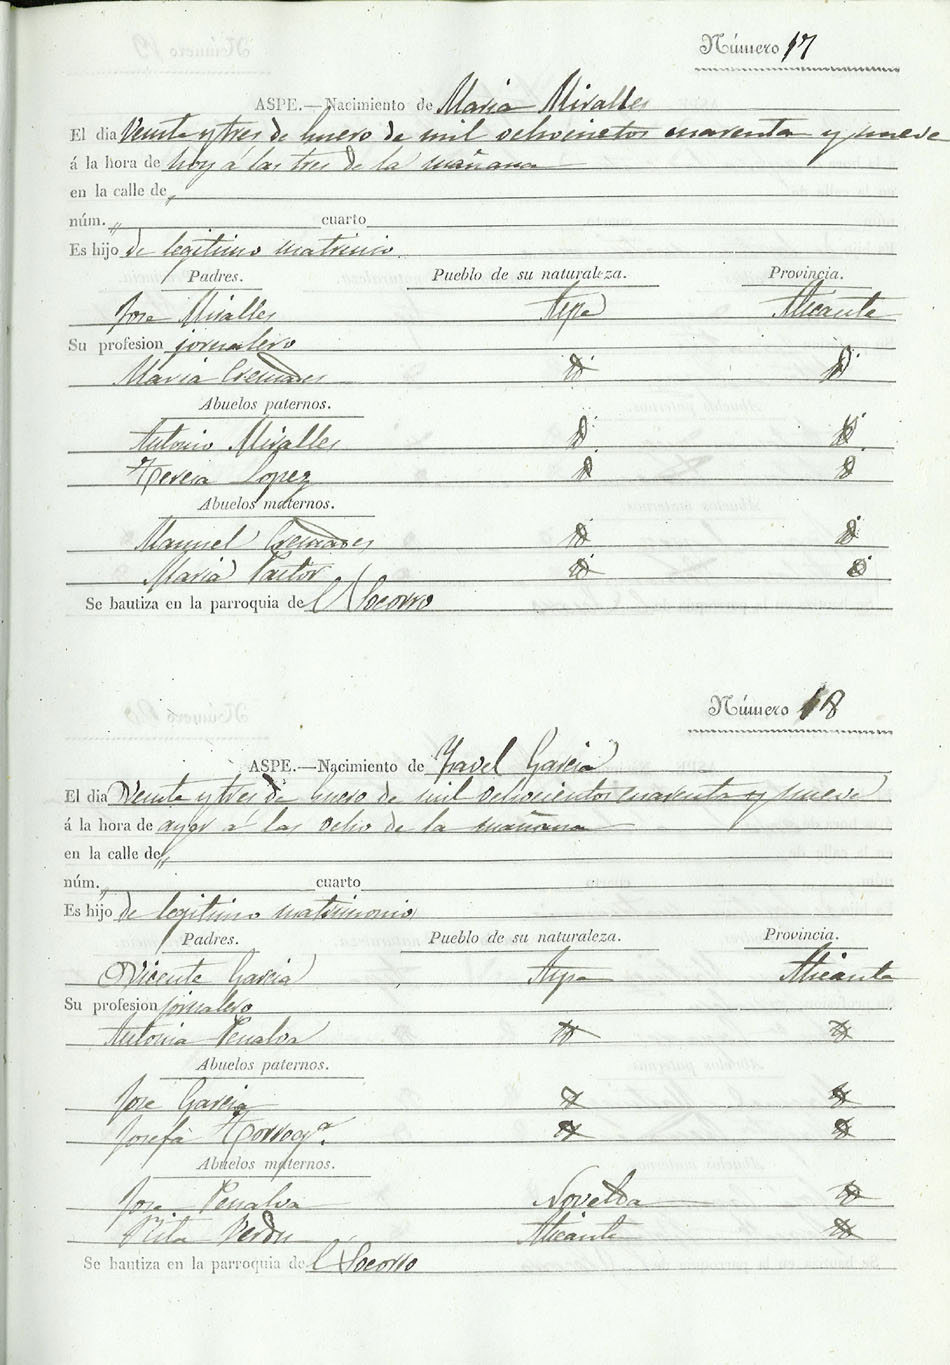 Número 17
ASPE.—Nacimiento de Maria Miralles
El dia Veinte y tres de Enero de mil ochocientos cuarenta y nueve
á la hora de hoy á las tres de la mañana
en la calle de „
núm. „ cuarto
Es hijo de legitimo matrinio
Padres. Pueblo de su naturaleza. Provincia.
Jose Miralles Aspe Alicante
Su profesion jornalero
Maria Cremades
Abuelos paternos.
Antonio Miralles
Teresa Lopez
Abuelos maternos.
Manuel Cremades
Maria Pastor
Se bautiza en la parroquia del Socorro
Número 18
ASPE.—Nacimiento de Ysavel Garcia
El dia Veinte y tres de Enero de mil ochocientos cuarenta y nueve
á la hora de ayer á las ocho de la mañana
en la calle de „
núm. „ cuarto
Es hijo de legitimo matrimonio
Padres. Pueblo de su naturaleza. Provincia.
Vicente Garcia Aspe Alicante
Su profesion jornalero
Antonia Penalva
Abuelos paternos.
Jose Garcia
Josefa
Abuelos maternos.
Jose Penalva Novelda
Rita Verdu Alicante
Se bautiza en la parroquia del Socorro